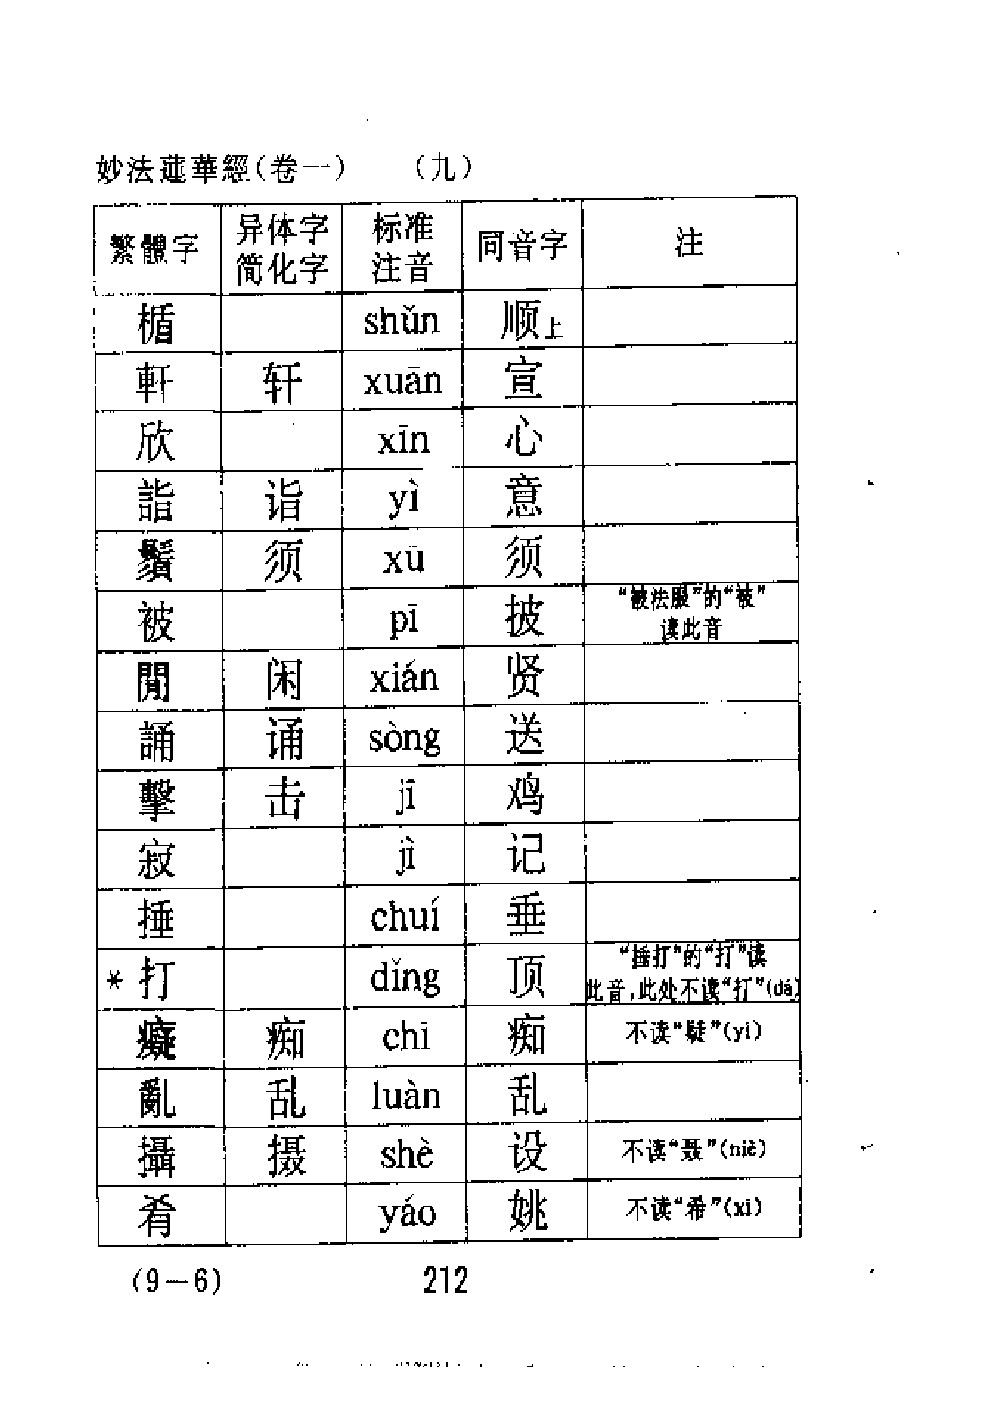 妙法蓮華經(卷一) (九)
繁體字 异体字 简化字 标准注音 同音字 注
楯 shǔn 顺上
軒 轩 xuān 宣
欣 xīn 心
詣 诣 yì 意
鬚 须 xū 须
被 pī 披 “被法服”的“被”读此音
閒 闲 xián 贤
誦 诵 sòng 送
擊 击 jī 鸡
寂 jì 记
捶 chuí 垂
*打 dǐng 顶 “捶打”的“打”读此音,此处不读“打”(dá)
癡 痴 chī 痴 不读“疑”(yí)
亂 乱 luàn 乱
攝 摄 shè 设 不读“聂”(niè)
肴 yáo 姚 不读“希”(xī)
(9-6) 212